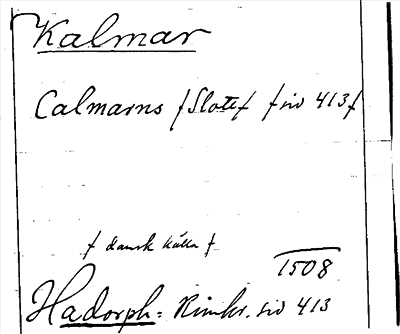 Kalmar
Calmarns /Slott/ /sid 413/
/dansk källa/
1508
Hadorph: Rimkr. sid 413